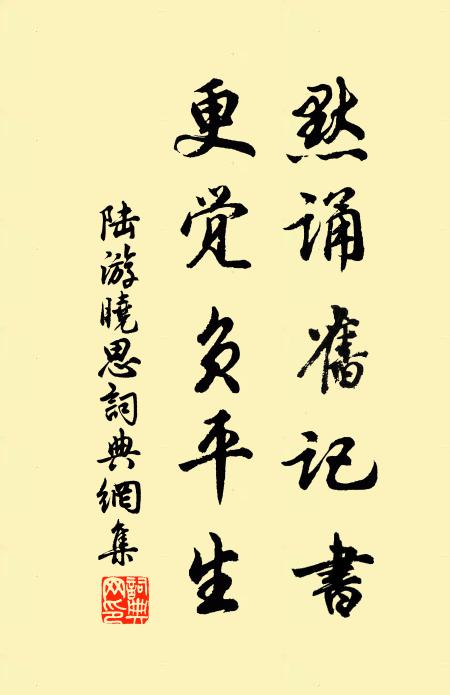 默诵舊记書
更觉负平生
陆游曉思詞典網集
詞典网印